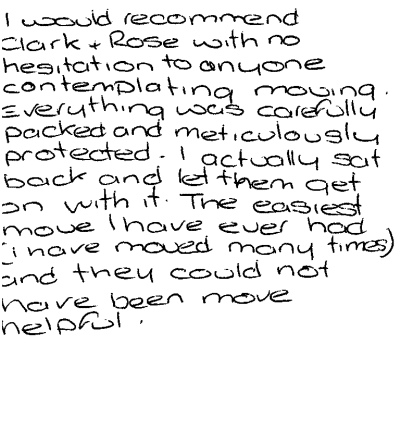 I would recommend
Clark + Rose with no
hesitation to anyone
contemplating moving.
Everything was carefully
packed and meticulously
protected. I actually sat
back and let them get
on with it. The easiest
move I have ever had
(i have moved many times)
and they could not
have been move
helpful.